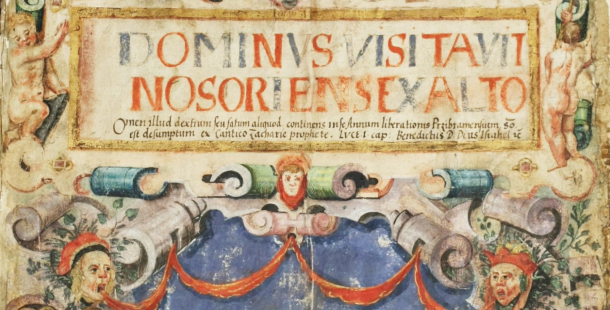 DOMINVS VISITAVIT
NOS ORIENS EX ALTO
Omen illud dextrum seu fatum aliquod continens in se Annum liberationis Przibramensium
est desumptum ex Cantico Zacharie prophete. LVCE I cap. Benedictus D Deus Israhel